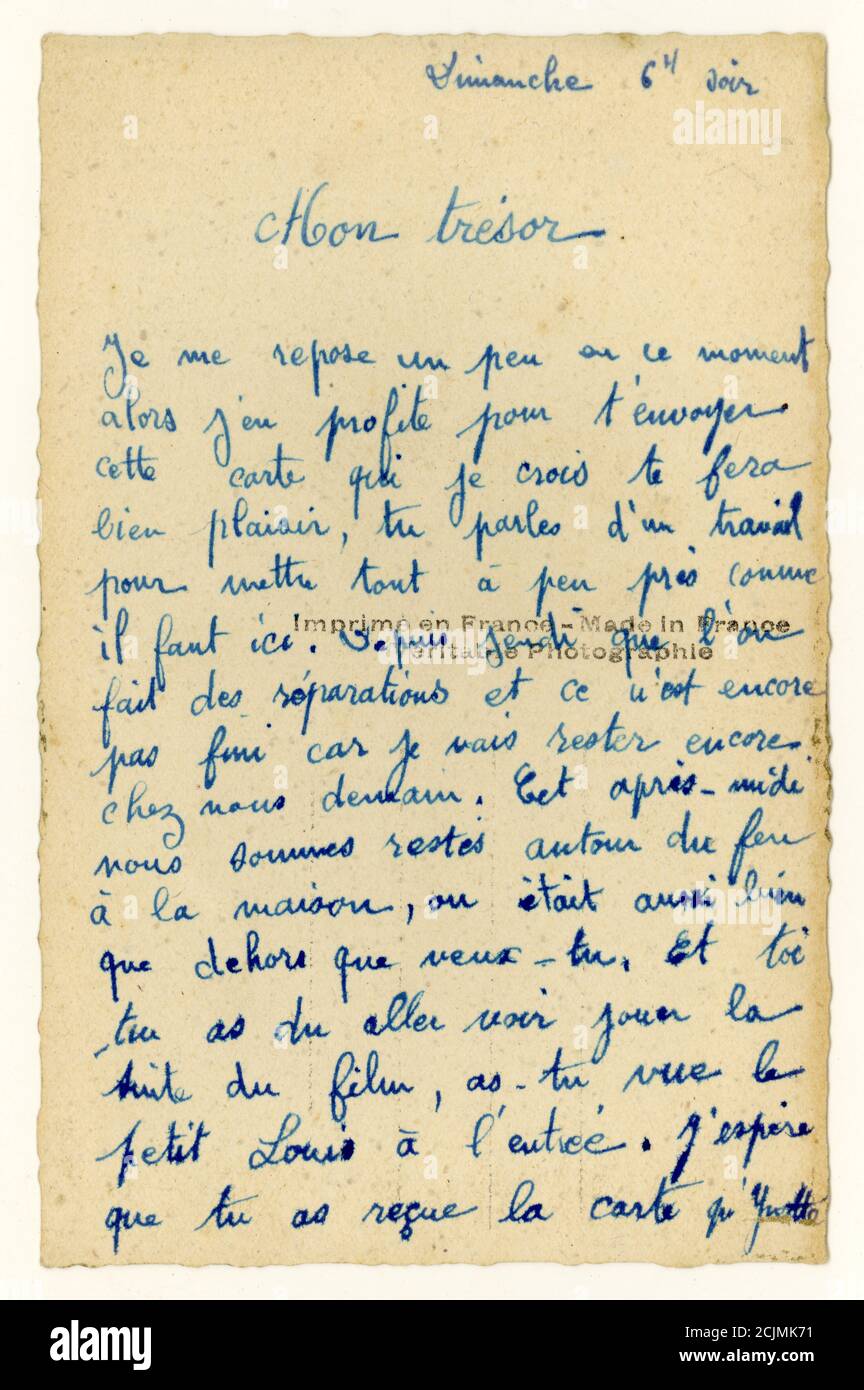 Dimanche 6H soir
Mon trésor
Je me repose un peu en ce moment
alors j'en profite pour t'envoyer
cette carte qui je crois te fera
bien plaisir, tu parles d'un travail
pour mettre tout à peu près comme
il faut ici. Depuis jeudi que l'on
Imprimé en France - Made in France
Véritable Photographie
fait des réparations et ce n'est encore
pas fini car je vais rester encore
chez nous demain. Cet après-midi
nous sommes restés autour du feu
à la maison, on était aussi bien
que dehors que veux-tu. Et toi
tu as du aller voir jouer la
suite du film, as-tu vue le
petit Louis à l'entrée. J'espère
que tu as reçue la carte qu'Yvette
a alamy
alamy
Image ID: 2CJMK71
www.alamy.com